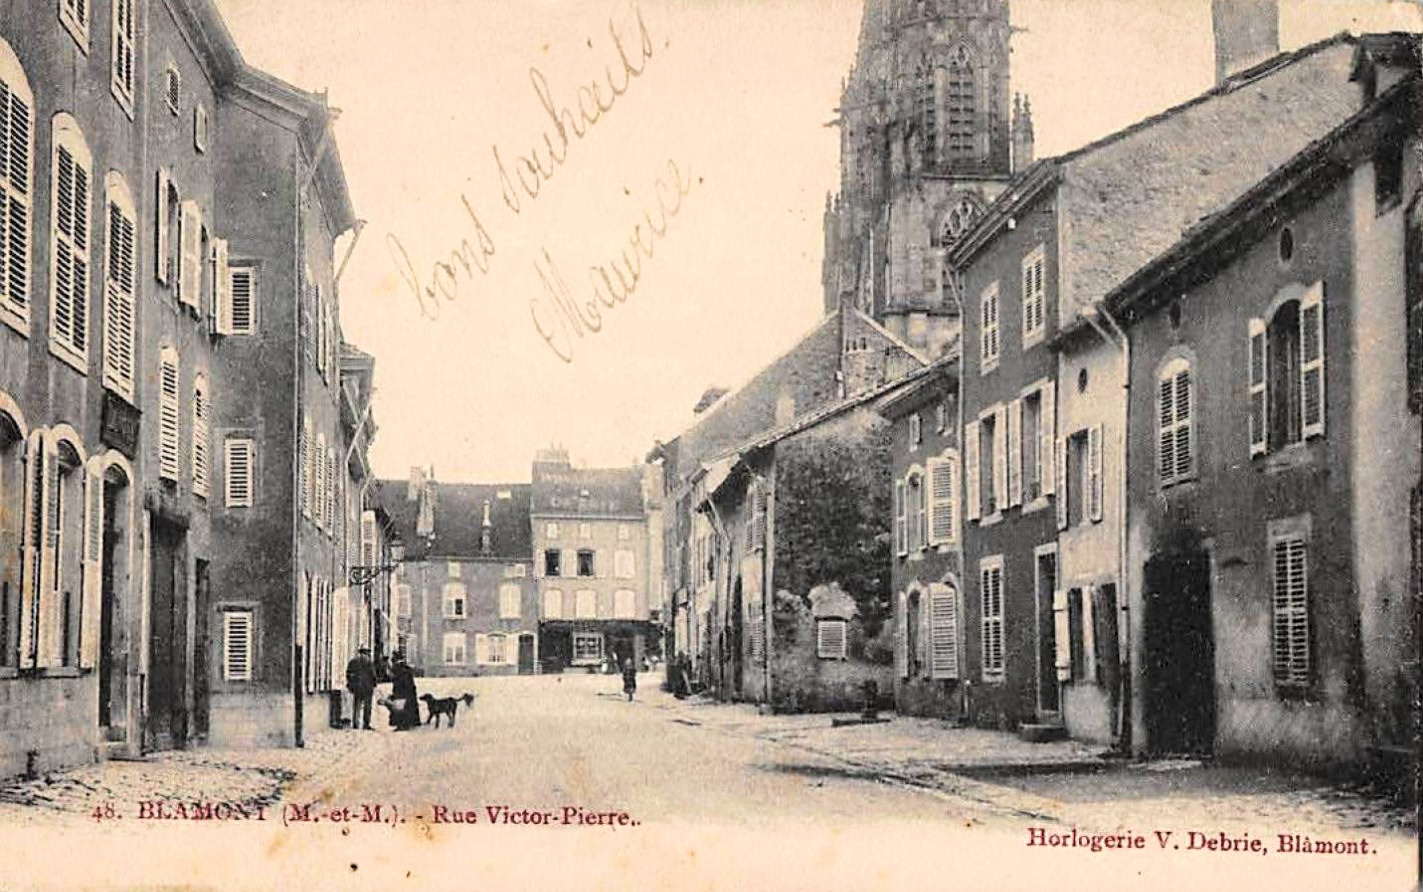 bons souhaits.
Maurice.
48. BLAMONT (M.-et-M.). - Rue Victor-Pierre.
Horlogerie V. Debrie, Blâmont.